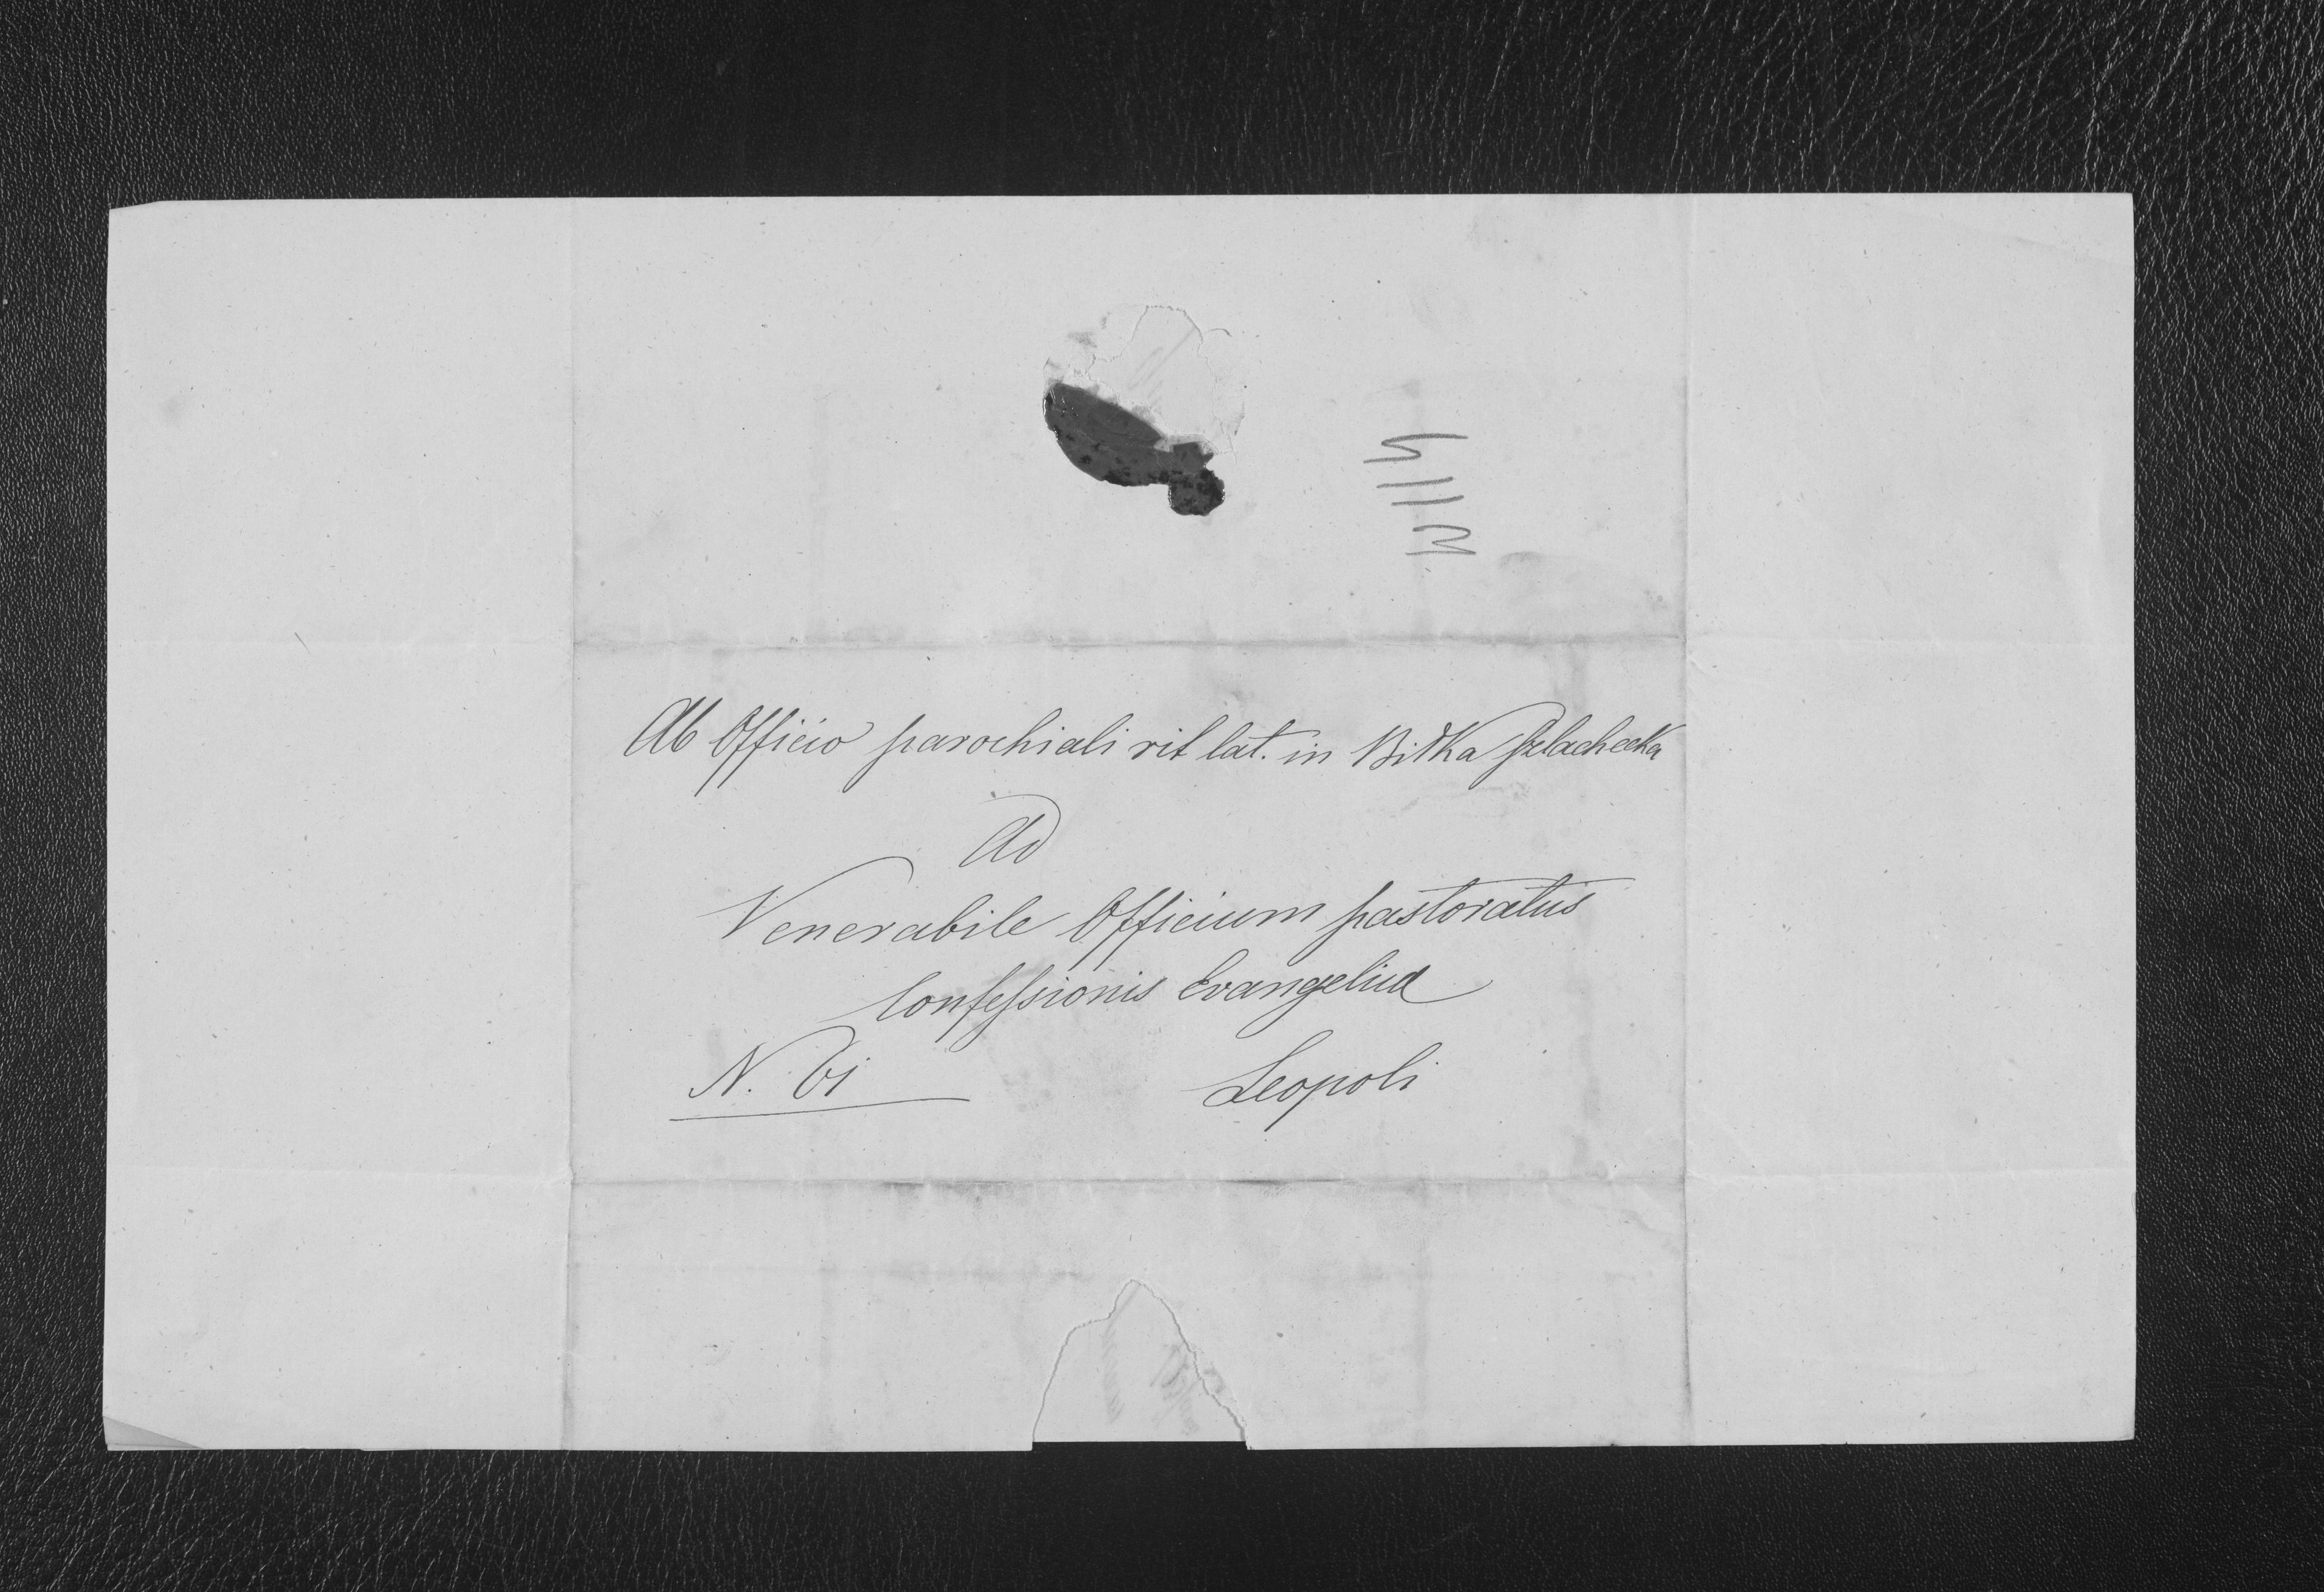 Ab Officio parochiali rit lat. in Bitka Szlachecka
Ad
Venerabile Officium pastoratus
Confessionis Evangelica
N. 61
Leopoli